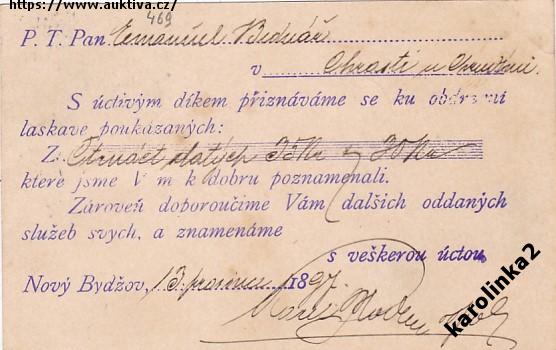 https://www.auktiva.cz/
469
P. T. Pan Emanuel Bednář
v Chrasti u Chrudimi
S úctivým díkem přiznáváme se ku obdržení
laskave poukázaných:
Z. Čtrnáct zlatých 35 kr
které jsme V m k dobru poznamenali.
Zároveň doporoučíme Vám dalších oddaných
služeb svych, a znamenáme
s veškerou úctou
Nový Bydžov, 13 prosince 1897.
karolinka2